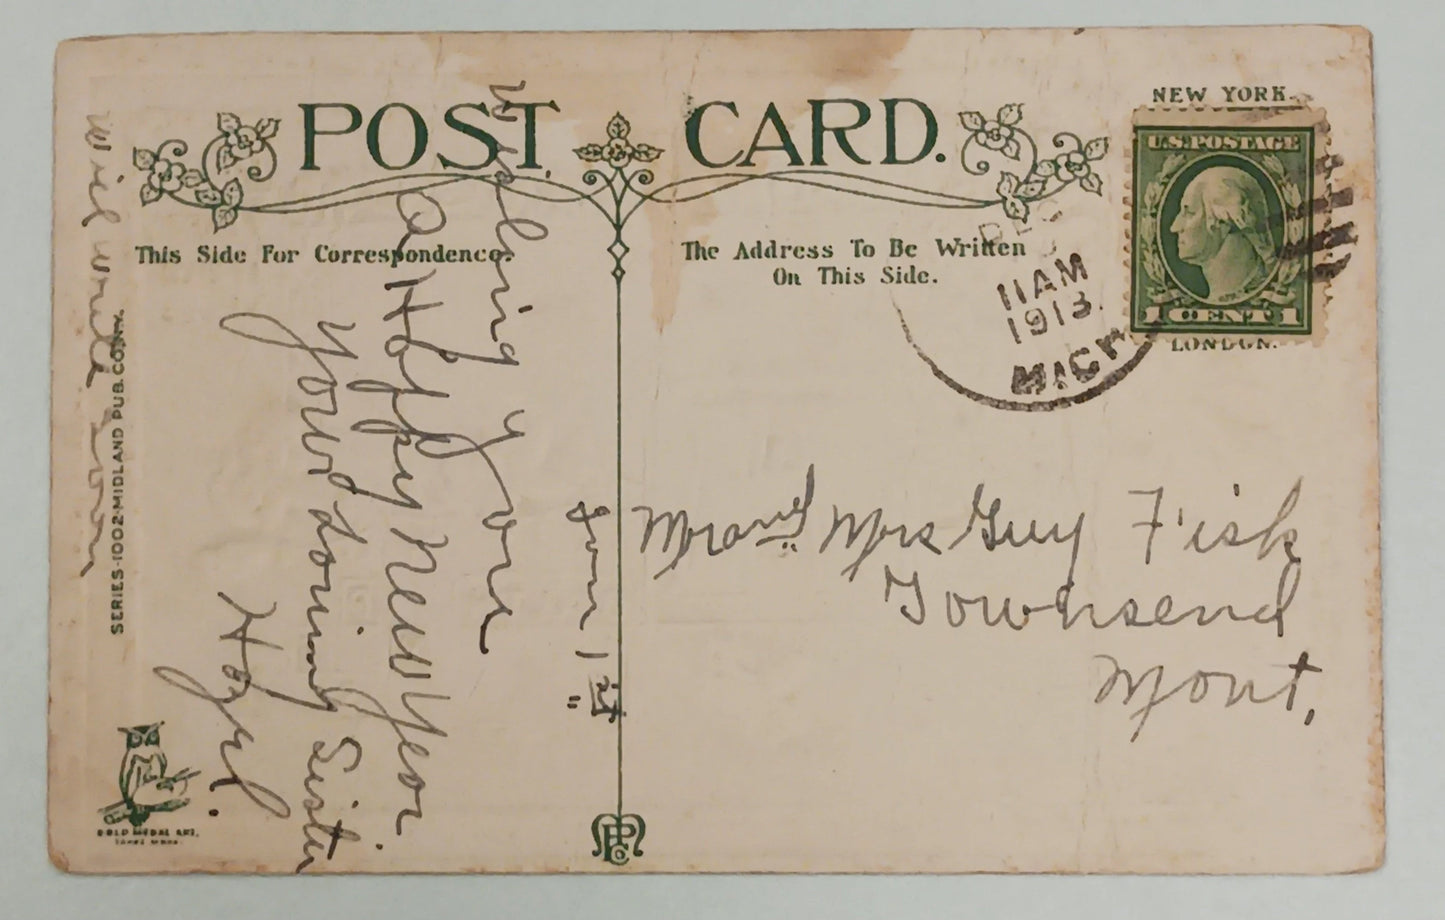 POST CARD.
This Side For Correspondence.
The Address To Be Written
On This Side.
NEW YORK.
U.S. POSTAGE
1 CENT 1
LONDON.
DEC
11 AM
1913.
MICH
Jan 1st
Wishing you
A Happy New Year
Your Loving Sister
Hazel.
will write soon
Mr and Mrs Guy Fisk
Townsend
Mont.
SERIES-1002-MIDLAND PUB. CO. N.Y.
GOLD MEDAL ART.
TRADE MARK.